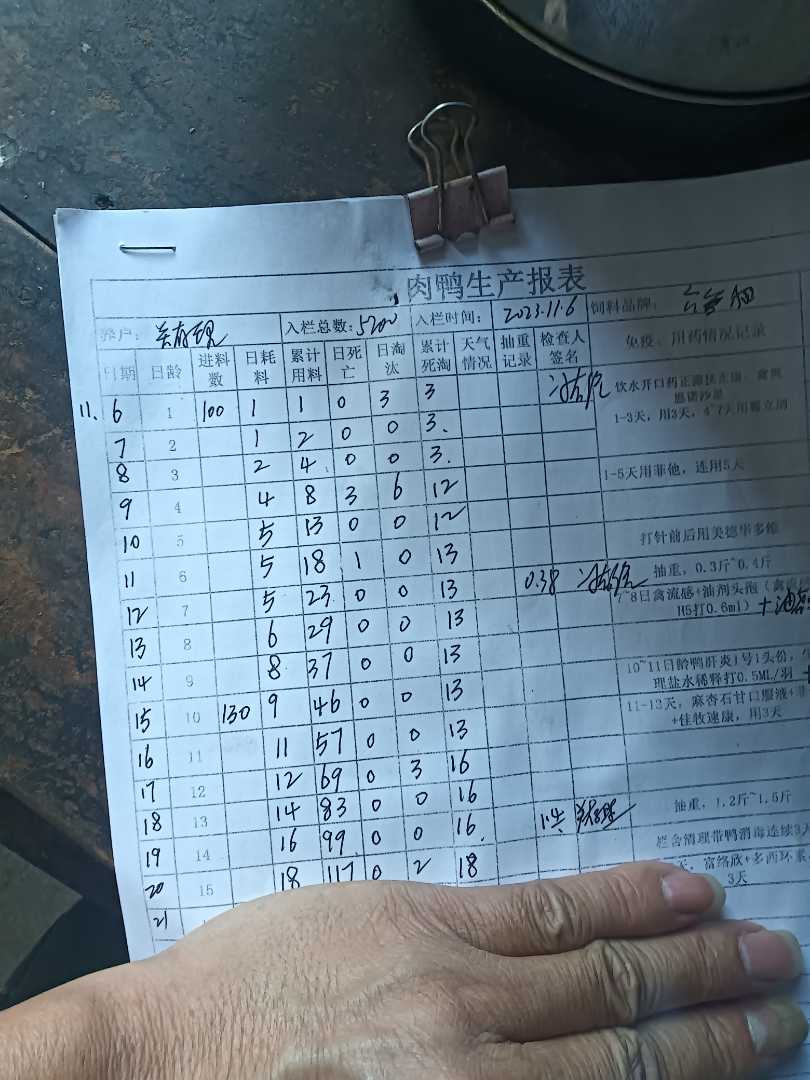 肉鸭生产报表
养户: 入栏总数:5200 入栏时间: 2023.11.6 饲料品牌:
日期 日龄 进料数 日耗料 累计用料 日死亡 日淘汰 累计死淘 天气情况 抽重记录 检查人签名 免疫、用药情况记录
11、6 1 100 1 1 0 3 3 饮水开口药
1-3天，用3天，4~7天用
7 2 1 2 0 0 3.
8 3 2 4 0 0 3. 1-5天用菲他，连用5天
9 4 4 8 3 6 12
10 5 5 13 0 0 12 打针前后用美德华多维
11 6 5 18 1 0 13 抽重，0.3斤~0.4斤
12 7 5 23 0 0 13 0.38 7~8日禽流感+油剂头孢（禽流感
H5打0.6ml）
13 8 6 29 0 0 13
14 9 8 37 0 0 13 10~11日龄鸭肝炎1号1头份，
理盐水稀释打0.5ML/羽
15 10 130 9 46 0 0 13 11-13天，麻杏石甘口服液+
+佳牧速康，用3天
16 11 11 57 0 0 13
17 12 12 69 0 3 16
18 13 14 83 0 0 16 抽重，1.2斤~1.5斤
19 14 16 99 0 0 16. 栏舍清理带鸭消毒连续3天
20 15 18 117 0 2 18 天，富络欣+多西环素
3天
21